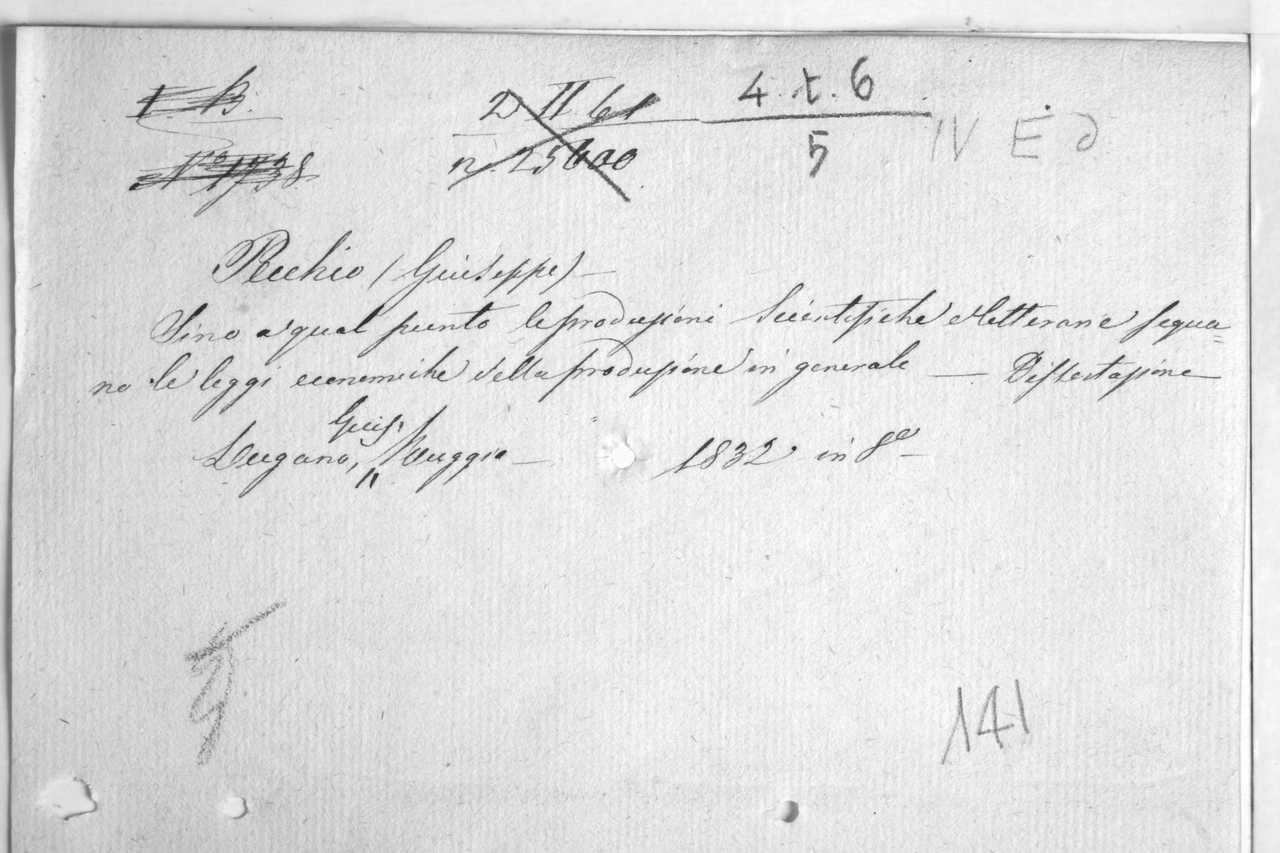 I. B.
2 II 61
4. t. 6
5
IV E ∂
Nº 1738
n. 25600
Pecchio (Giuseppe) —
Sino a qual punto le produzioni Scientifiche e Letterarie segua=
no le leggi economiche della produzione in generale — Dissertazione
Lugano, Gius. Ruggia — 1832 in 8º —
141